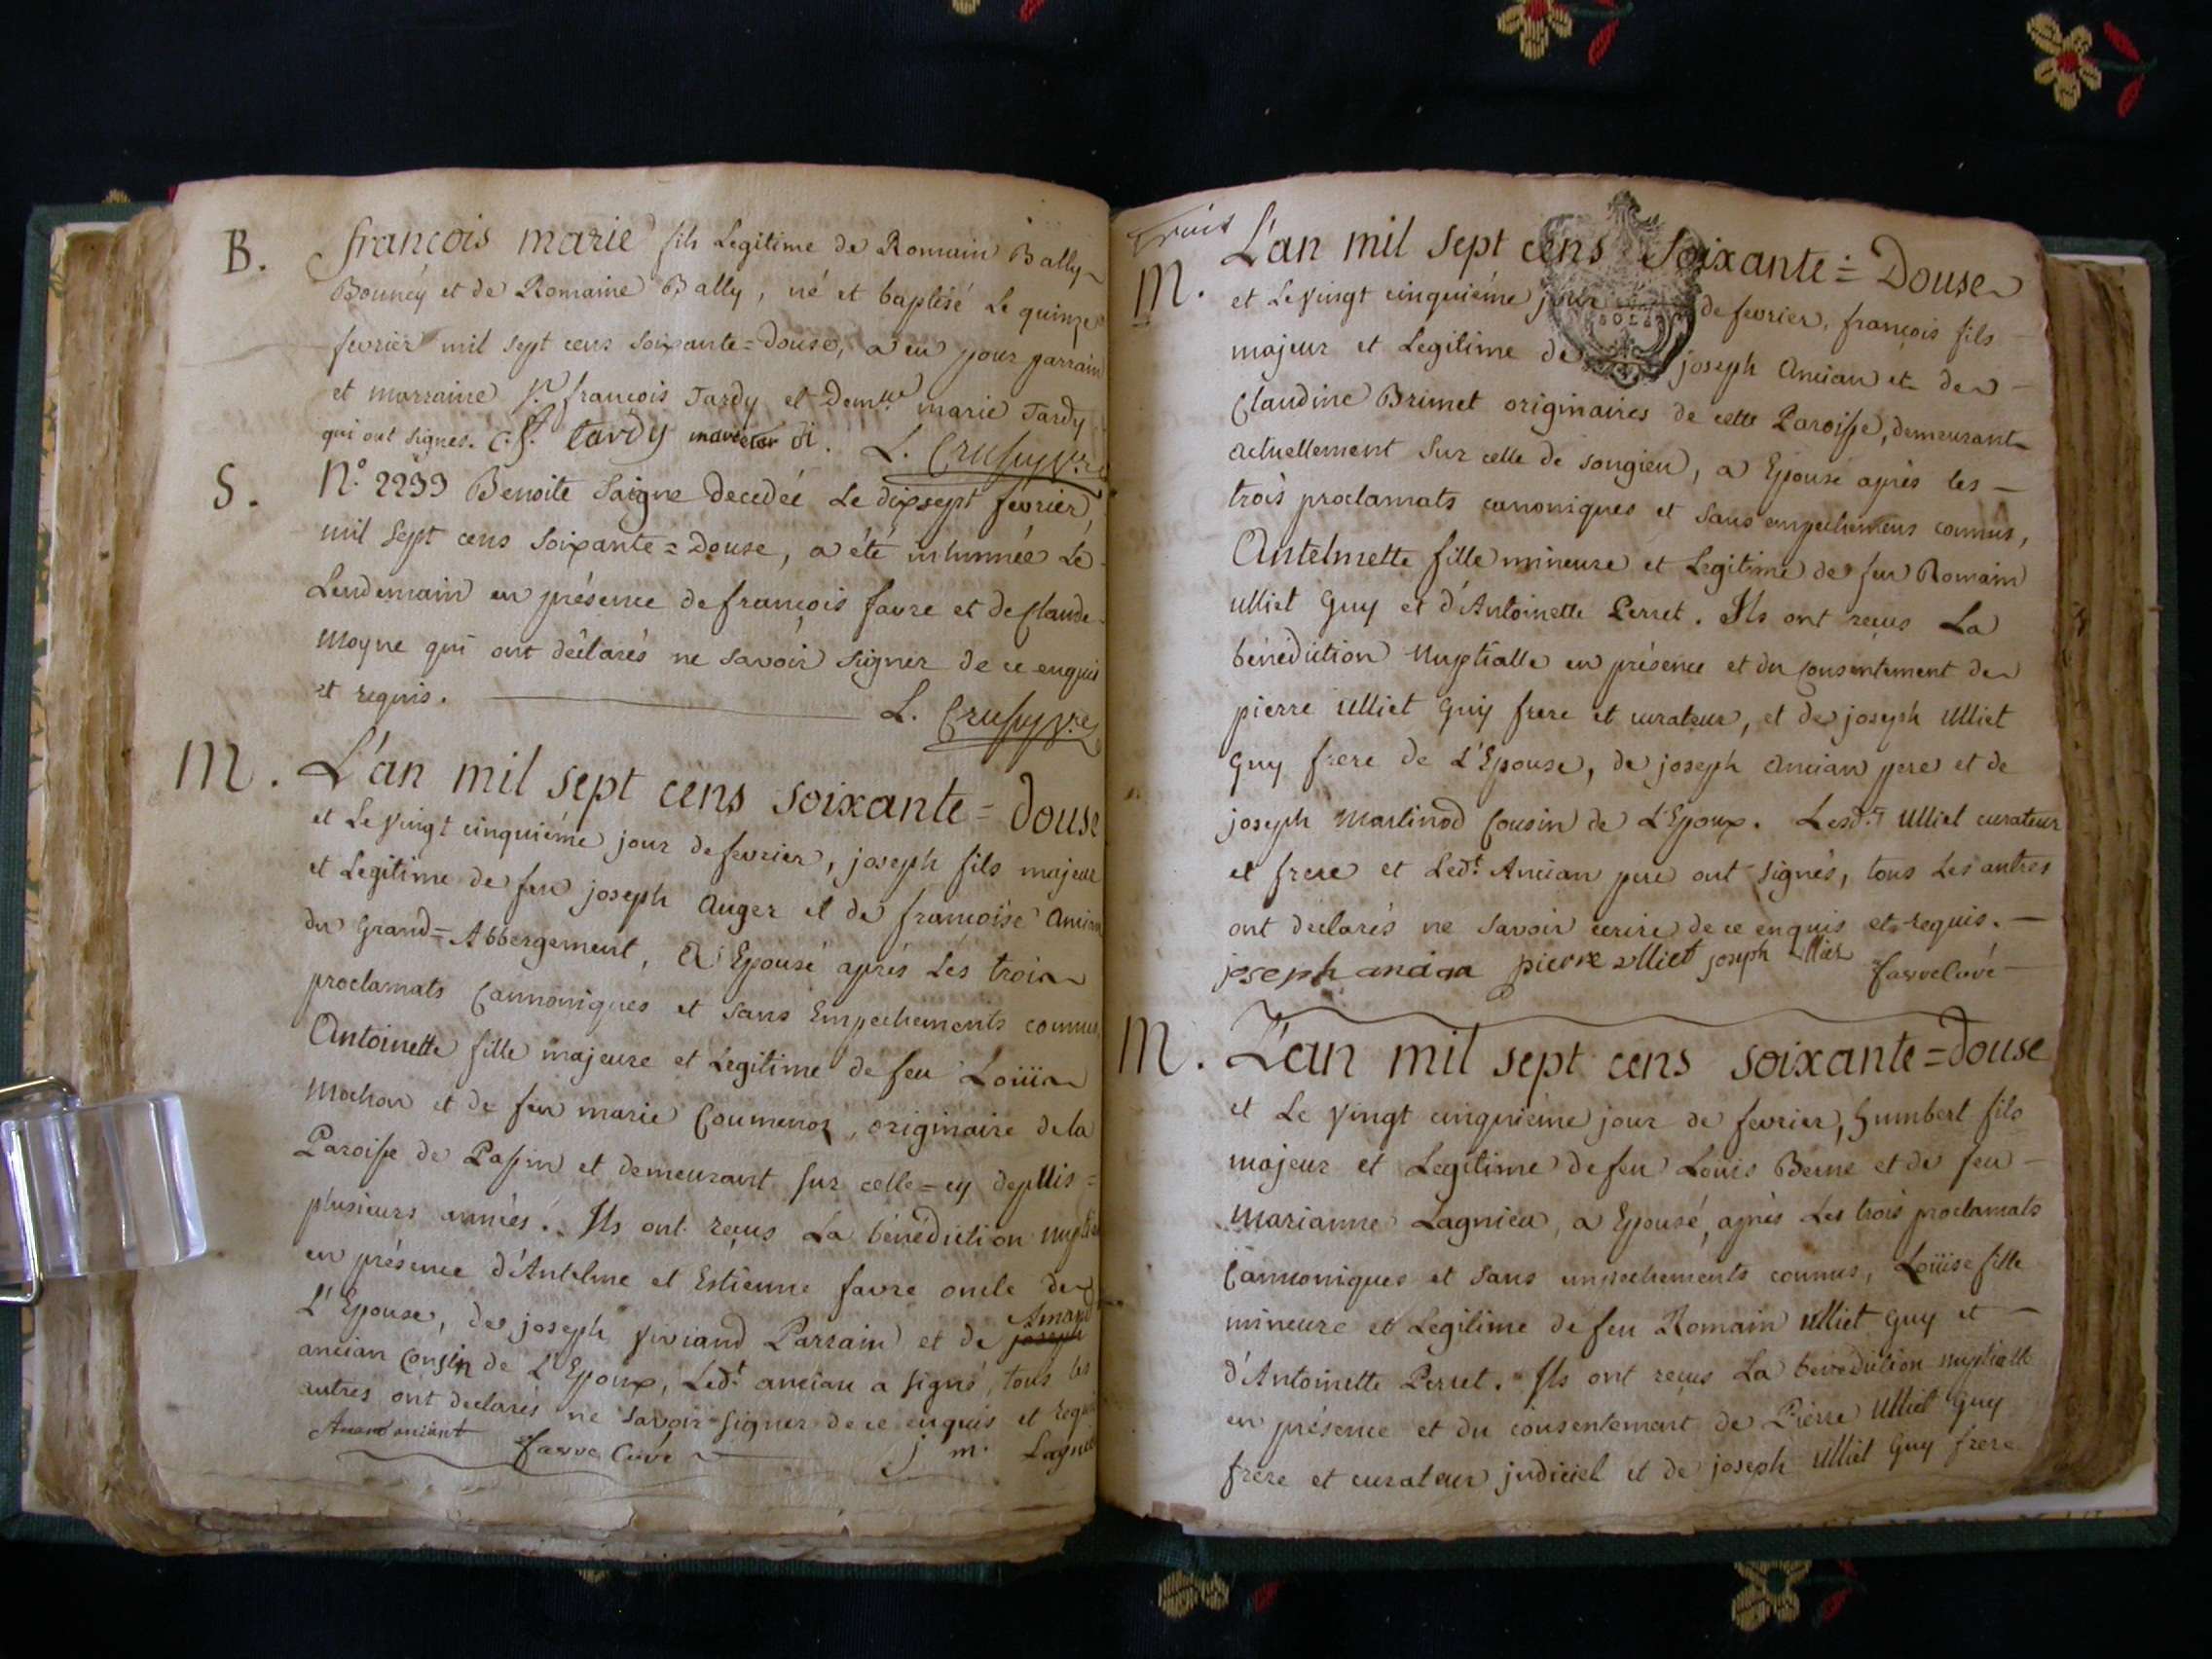 B.
françois marie fils Legitime de Romain Bally
Bounéy et de Romaine Bally, né et baptisé Le quinze
fevrier mil sept cens soixante=douse, a eu pour parrain
et marraine Sr. françois Tardy et Demlle marie Tardy
qui ont signés. C. f. tardy L. Crusy Vre
S.
No. 2299 Benoite Saigne Decedée Le dixsept fevrier,
mil sept cens soixante=Douse, a été inhumée Le
Lendemain en présence de françois favre et de Claude
Moyne qui ont déclarés ne savoir signer de ce enquis
et requis. L. Crusy Vre
M.
L'an mil sept cens soixante=douse
et Le vingt cinquiéme jour de fevrier, joseph fils majeur
et Legitime de feu joseph Auger et de francoise Ancian
du Grand=Abbergement, a Epousé aprés Les trois
proclamats Cannoniques et sans Empechements connus,
Antoinette fille majeure et Legitime de feu Loüis
Mochon et de feu marie Coumenoz, originaire de la
Paroisse de Passin et demeurant sur celle=cy depuis=
plusieurs années. Ils ont reçus La bénédiction nuptiale
en présence d'Antelme et Estienne favre oncle de
L'Epouse, de joseph Viviand Parrain et de Amand
ancian Cousin de L'Epoux, Ledt. ancian a signé, tous les
autres ont declarés ne savoir signer de ce enquis et requis
Amand anciant favre Curé j m. Lagnieu
Trois
M.
L'an mil sept cens soixante=Douse
et Le vingt cinquiéme jour de fevrier, françois fils
majeur et Legitime de joseph Ancian et de
Claudine Brimet originaires de cette Paroisse, demeurant
actuellement sur celle de songieu, a Epousé aprés les
trois proclamats canoniques et sans empechemens connus,
Antelmette fille mineure et Legitime de feu Romain
Ulliet Guy et d'Antoinette Perret. Ils ont reçus La
bénédiction Nuptialle en présence et du consentement de
pierre Ulliet Guy frere et curateur, et de joseph Ulliet
Guy frere de L'Epouse, de joseph Ancian pere et de
joseph Martinod Cousin de L'Epoux. Lesds. Ulliet curateur
et frere et Ledt. Ancian pere ont signés, tous Les autres
ont declarés ne savoir écrire de ce enquis et requis.
joseph ancian pierre ulliet joseph ulliet favre Curé
M.
L'an mil sept cens soixante=douse
et Le vingt cinquiéme jour de fevrier, humbert fils
majeur et Legitime de feu Louis Berne et de feu
Marianne Lagnieu, a Epousé, aprés Les trois proclamats
Cannoniques et sans empechements connus, Loüise fille
mineure et Legitime de feu Romain Ulliet Guy et
d'Antoinette Perret. Ils ont reçus La benediction nuptialle
en présence et du consentement de Pierre Ulliet Guy
frere et curateur judiciel et de joseph Ulliet Guy frere